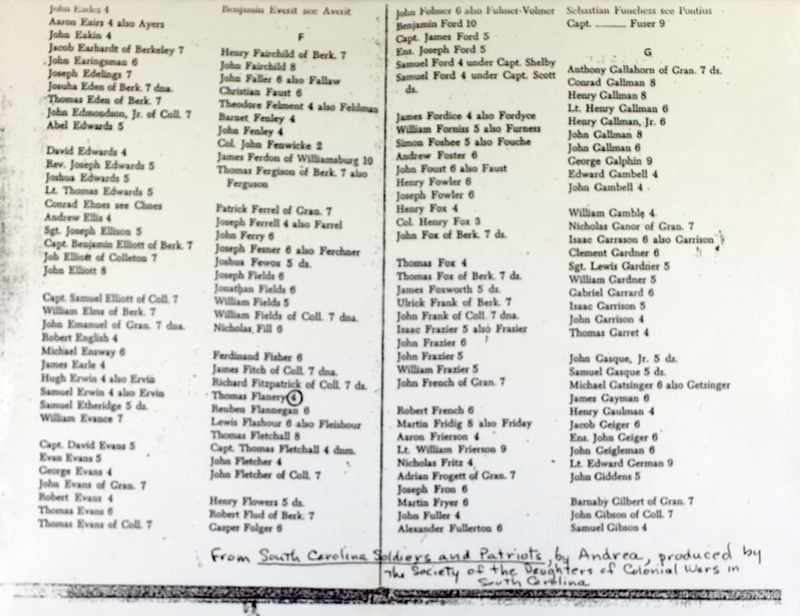 John Earles 4
Aaron Eairs 4 also Ayers
John Eakin 4
Jacob Earhardt of Berkeley 7
John Earingsman 6
Joseph Edelings 7
Josuha Eden of Berk. 7 dna.
Thomas Eden of Berk. 7
John Edmondson, Jr. of Coll. 7
Abel Edwards 5
David Edwards 4
Rev. Joseph Edwards 5
Joshua Edwards 5
Lt. Thomas Edwards 5
Conrad Ehnes see Chnes
Andrew Ellis 4
Sgt. Joseph Ellison 5
Capt. Benjamin Elliott of Berk. 7
Job Elliott of Colleton 7
John Elliott 8
Capt. Samuel Elliott of Coll. 7
William Elms of Berk. 7
John Emanuel of Gran. 7 dna.
Robert English 4
Michael Ensway 6
James Earle 4
Hugh Erwin 4 also Ervin
Samuel Erwin 4 also Ervin
Samuel Etheridge 5 ds.
William Evance 7
Capt. David Evans 5
Evan Evans 5
George Evans 4
John Evans of Gran. 7
Robert Evans 4
Thomas Evans 6
Thomas Evans of Coll. 7
Benjamin Everit see Averit
F
Henry Fairchild of Berk. 7
John Fairchild 8
John Faller 6 also Fallaw
Christian Faust 6
Theodore Felment 4 also Feldman
Barnet Fenley 4
John Fenley 4
Col. John Fenwicke 2
James Ferdon of Williamsburg 10
Thomas Fergison of Berk. 7 also
Ferguson
Patrick Ferrel of Gran. 7
Joseph Ferrell 4 also Farrel
John Ferry 6
Joseph Fesner 6 also Ferchner
Joshua Fewox 5 ds.
Joseph Fields 6
Jonathan Fields 6
William Fields 5
William Fields of Coll. 7 dna.
Nicholas Fill 6
Ferdinand Fisher 6
James Fitch of Coll. 7 dna.
Richard Fitzpatrick of Coll. 7 ds.
Thomas Flanery 4
Reuben Flannegan 6
Lewis Flashour 6 also Fleishour
Thomas Fletchall 8
Capt. Thomas Fletchall 4 dnm.
John Fletcher 4
John Fletcher of Coll. 7
Henry Flowers 5 ds.
Robert Flud of Berk. 7
Gasper Folger 6
John Folmer 6 also Fulmer-Volmer
Benjamin Ford 10
Capt. James Ford 5
Ens. Joseph Ford 5
Samuel Ford 4 under Capt. Shelby
Samuel Ford 4 under Capt. Scott
ds.
James Fordice 4 also Fordyce
William Forniss 5 also Furness
Simon Foshee 5 also Fouche
Andrew Foster 6
John Foust 6 also Faust
Henry Fowler 6
Joseph Fowler 6
Henry Fox 4
Col. Henry Fox 3
John Fox of Berk. 7 ds.
Thomas Fox 4
Thomas Fox of Berk. 7 ds.
James Foxworth 5 ds.
Ulrick Frank of Berk. 7
John Frank of Coll. 7 dna.
Isaac Frazier 5 also Frasier
John Frazier 6
John Frazier 5
William Frazier 5
John French of Gran. 7
Robert French 6
Martin Fridig 8 also Friday
Aaron Frierson 4
Lt. William Frierson 9
Nicholas Fritz 4
Adrian Frogett of Gran. 7
Joseph Fron 6
Martin Fryer 6
John Fuller 4
Alexander Fullerton 6
Sebastian Funchess see Pontius
Capt. —— Fuser 9
G
Anthony Gallahorn of Gran. 7 ds.
Conrad Gallman 8
Henry Gallman 8
Lt. Henry Gallman 6
Henry Gallman, Jr. 6
John Gallman 8
John Gallman 6
George Galphin 9
Edward Gambell 4
John Gambell 4
William Gamble 4
Nicholas Ganor of Gran. 7
Isaac Garrason 6 also Garrison
Clement Gardner 6
Sgt. Lewis Gardner 5
William Gardner 5
Gabriel Garrard 6
Isaac Garrison 5
John Garrison 4
Thomas Garret 4
John Gasque, Jr. 5 ds.
Samuel Gasque 5 ds.
Michael Gatsinger 6 also Getsinger
James Gayman 6
Henry Gaulman 4
Jacob Geiger 6
Ens. John Geiger 6
John Geigleman 6
Lt. Edward German 9
John Giddens 5
Barnaby Gilbert of Gran. 7
John Gibson of Coll. 7
Samuel Gibson 4
From South Carolina Soldiers and Patriots, by Andrea, produced by
the Society of the Daughters of Colonial Wars in
South Carolina